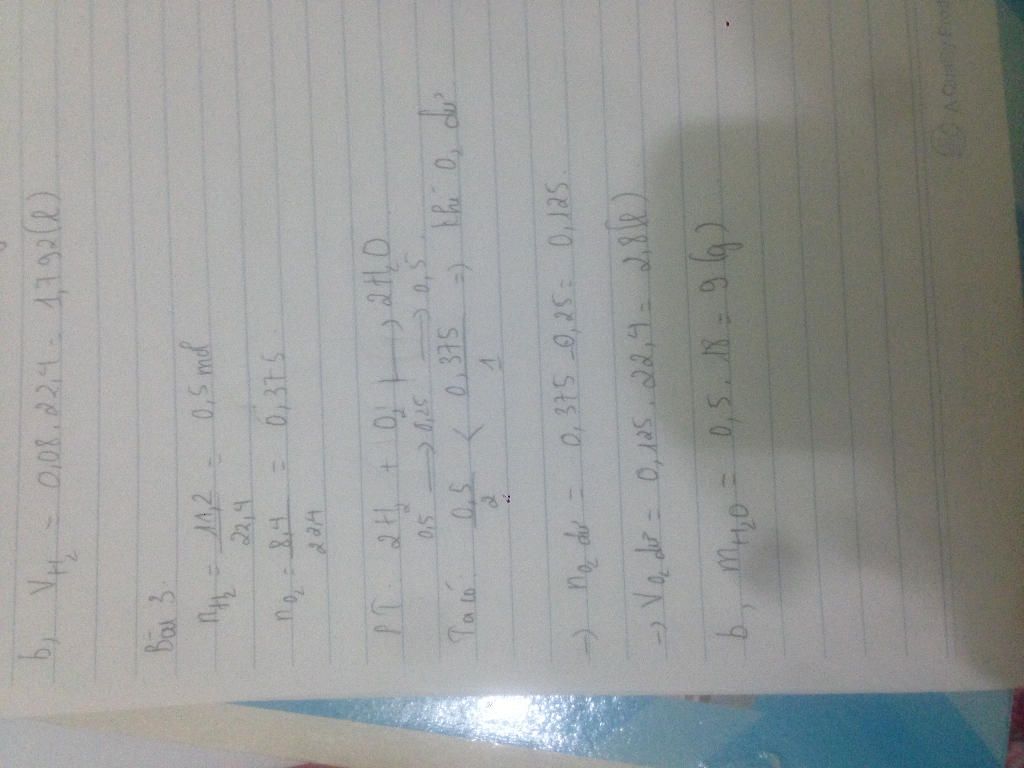 b, V H₂ = 0,08.22,4 = 1,792(l)
Bài 3.
nH₂ = 11,2/22,4 = 0,5 mol
nO₂ = 8,4/224 = 0,375.
PT. 2H₂ + O₂ → 2H₂O
0,5 → 0,25 → 0,5
Ta có 0,5/2 < 0,375/1 => thì O₂ dư
→ nO₂ dư = 0,375 - 0,25 = 0,125.
→ VO₂ dư = 0,125.22,4 = 2,8(l)
b, mH₂O = 0,5.18 = 9(g)